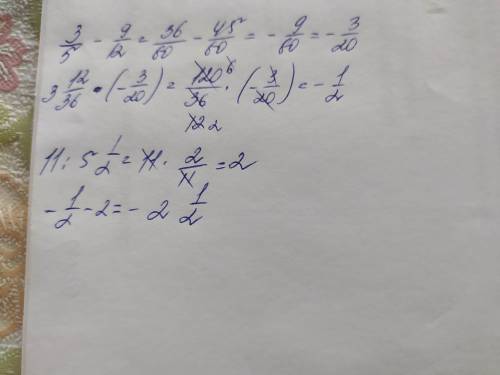 3/5 - 9/12 = 36/60 - 45/60 = - 9/60 = - 3/20
3 12/36 • (- 3/20) = 120/36 · (- 3/20) = - 1/2
6
12 2
11 : 5 1/2 = 11 · 2/11 = 2
- 1/2 - 2 = - 2 1/2